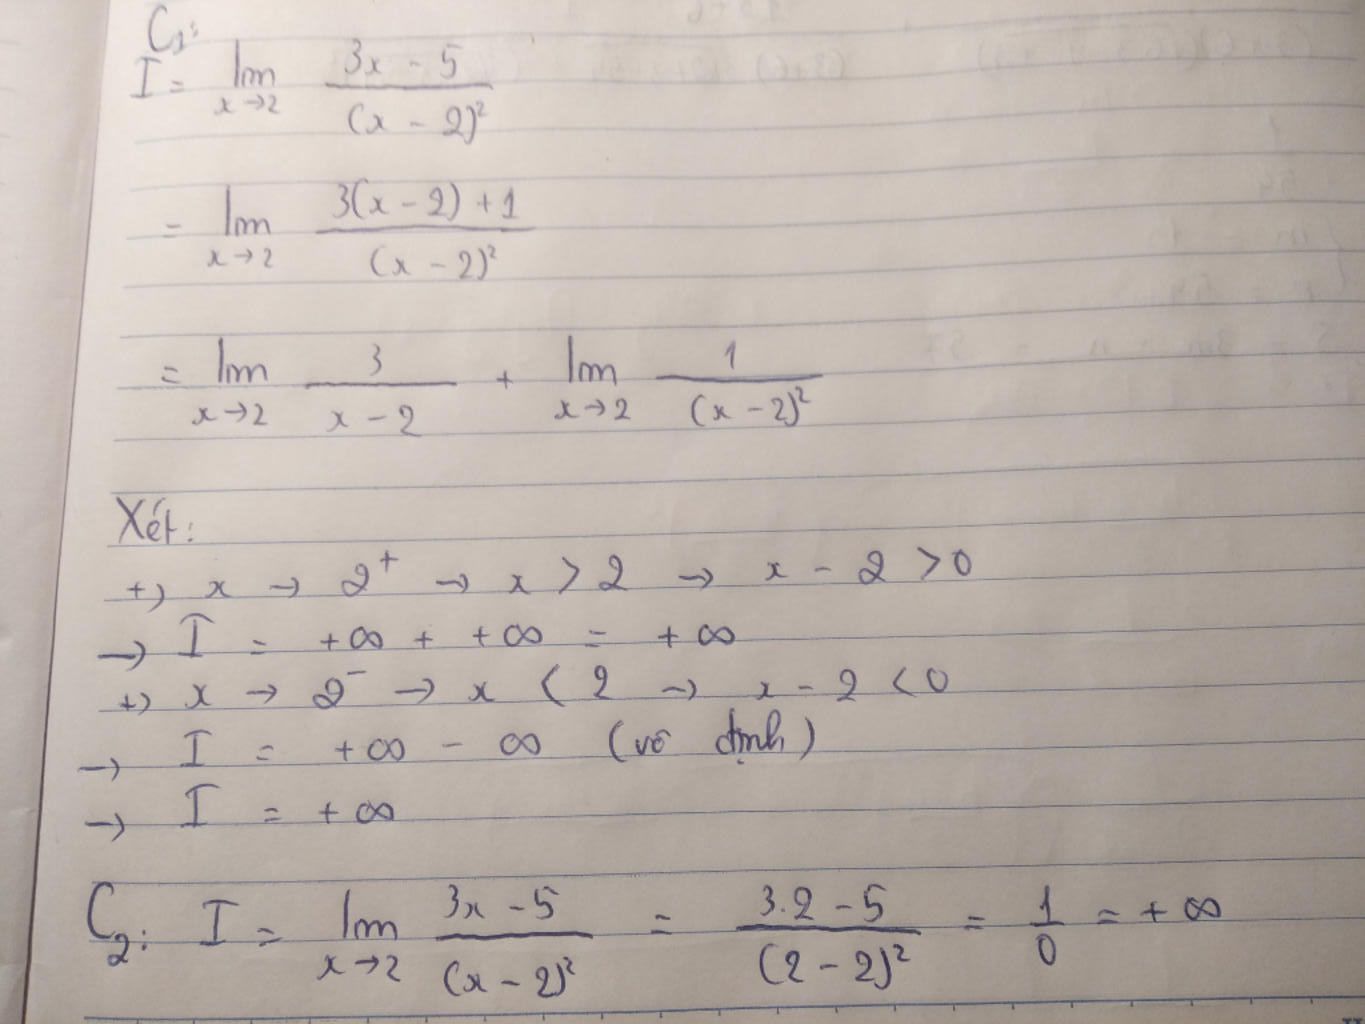 C₁:
I = lim x→2 (3x - 5)/(x - 2)²
= lim x→2 (3(x - 2) + 1)/(x - 2)²
= lim x→2 3/(x - 2) + lim x→2 1/(x - 2)²
Xét:
+) x → 2⁺ → x > 2 → x - 2 > 0
→ I = +∞ + +∞ = +∞
+) x → 2⁻ → x < 2 → x - 2 < 0
→ I = +∞ - ∞ (vô định)
→ I = +∞
C₂: I = lim x→2 (3x - 5)/(x - 2)² = (3.2 - 5)/(2 - 2)² = 1/0 = +∞